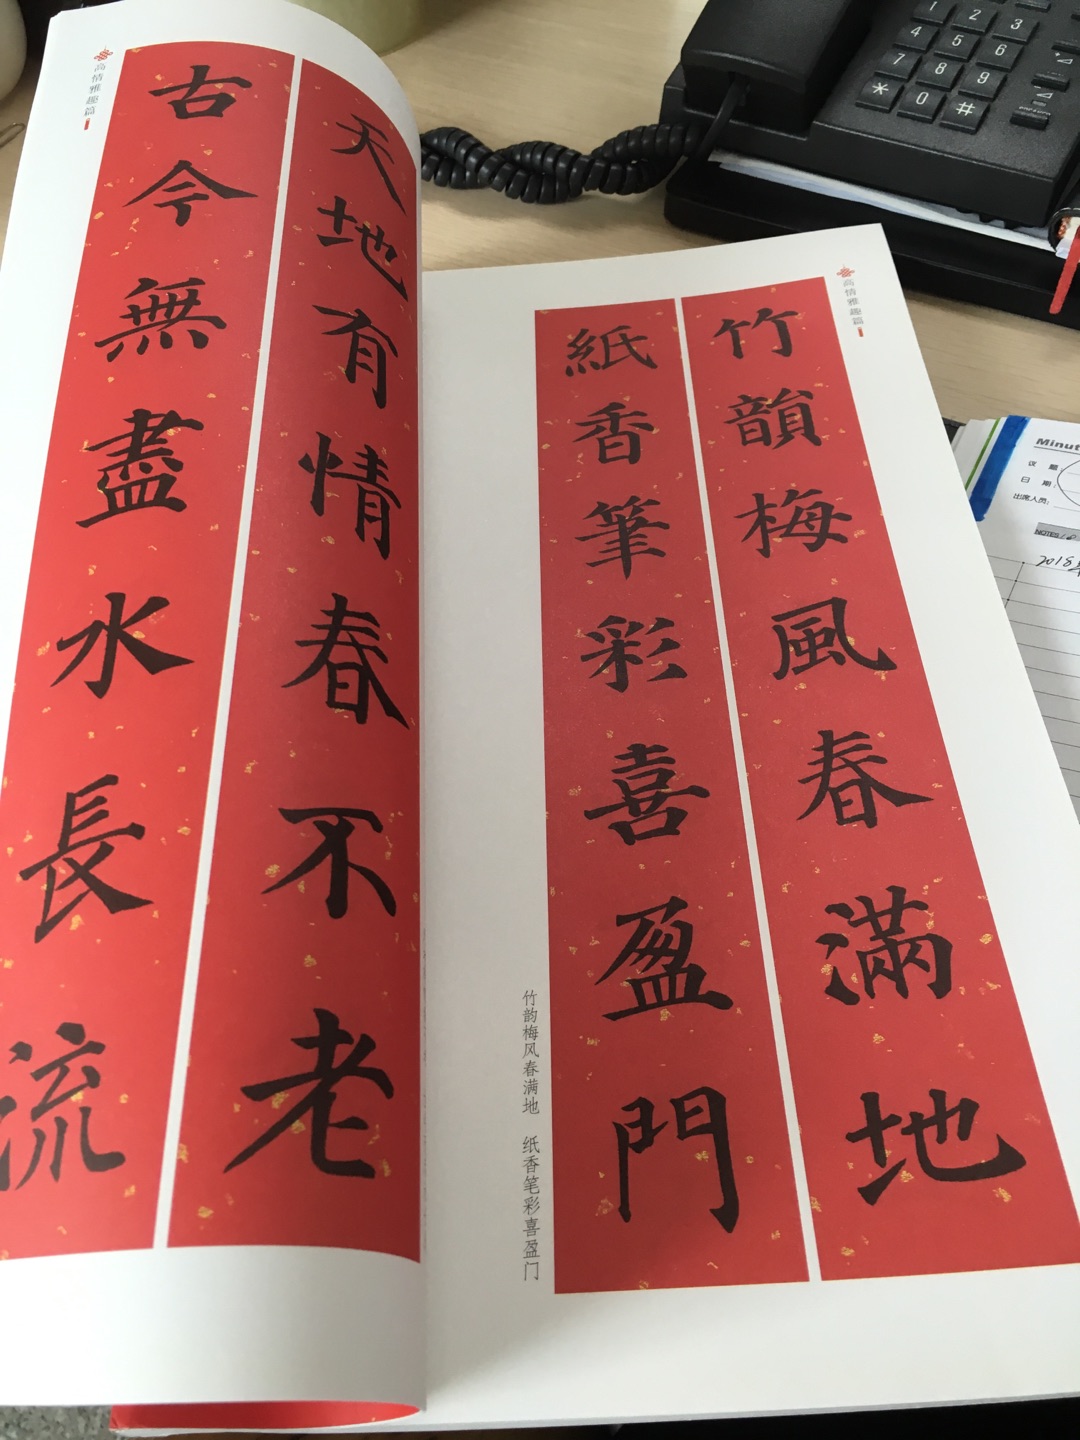 高情雅趣篇
天地有情春不老
古今無盡水長流
高情雅趣篇
竹韻梅風春滿地
紙香筆彩喜盈門
竹韵梅风春满地 纸香笔彩喜盈门
1 2 3
4 5 6
7 8 9
* 0 #
Minut
议 题:
日 期:
出席人员:
NOTES/
2018